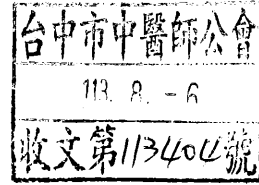 台中市中醫師公會
113. 8. -6
收文第113404號